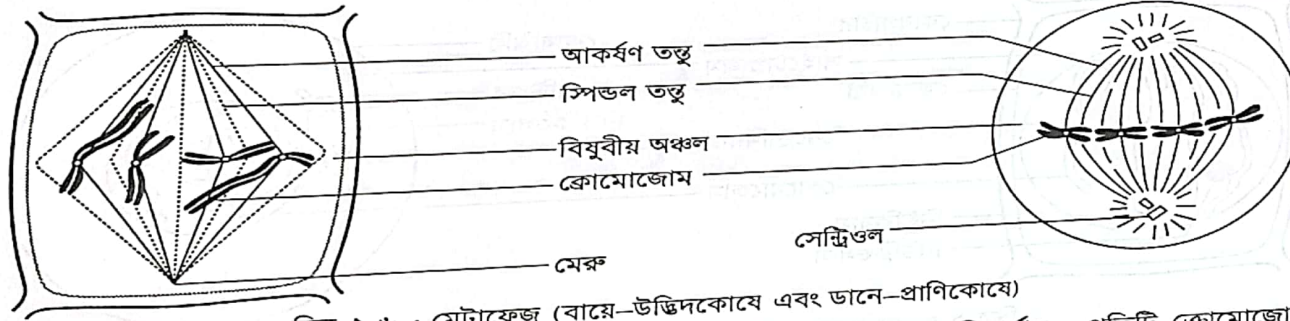 আকর্ষণ তন্তু
স্পিন্ডল তন্তু
বিষুবীয় অঞ্চল
ক্রোমোজোম
সেন্ট্রিওল
মেরু
মেটাফেজ (বায়ে–উদ্ভিদকোষে এবং ডানে–প্রাণিকোষে)